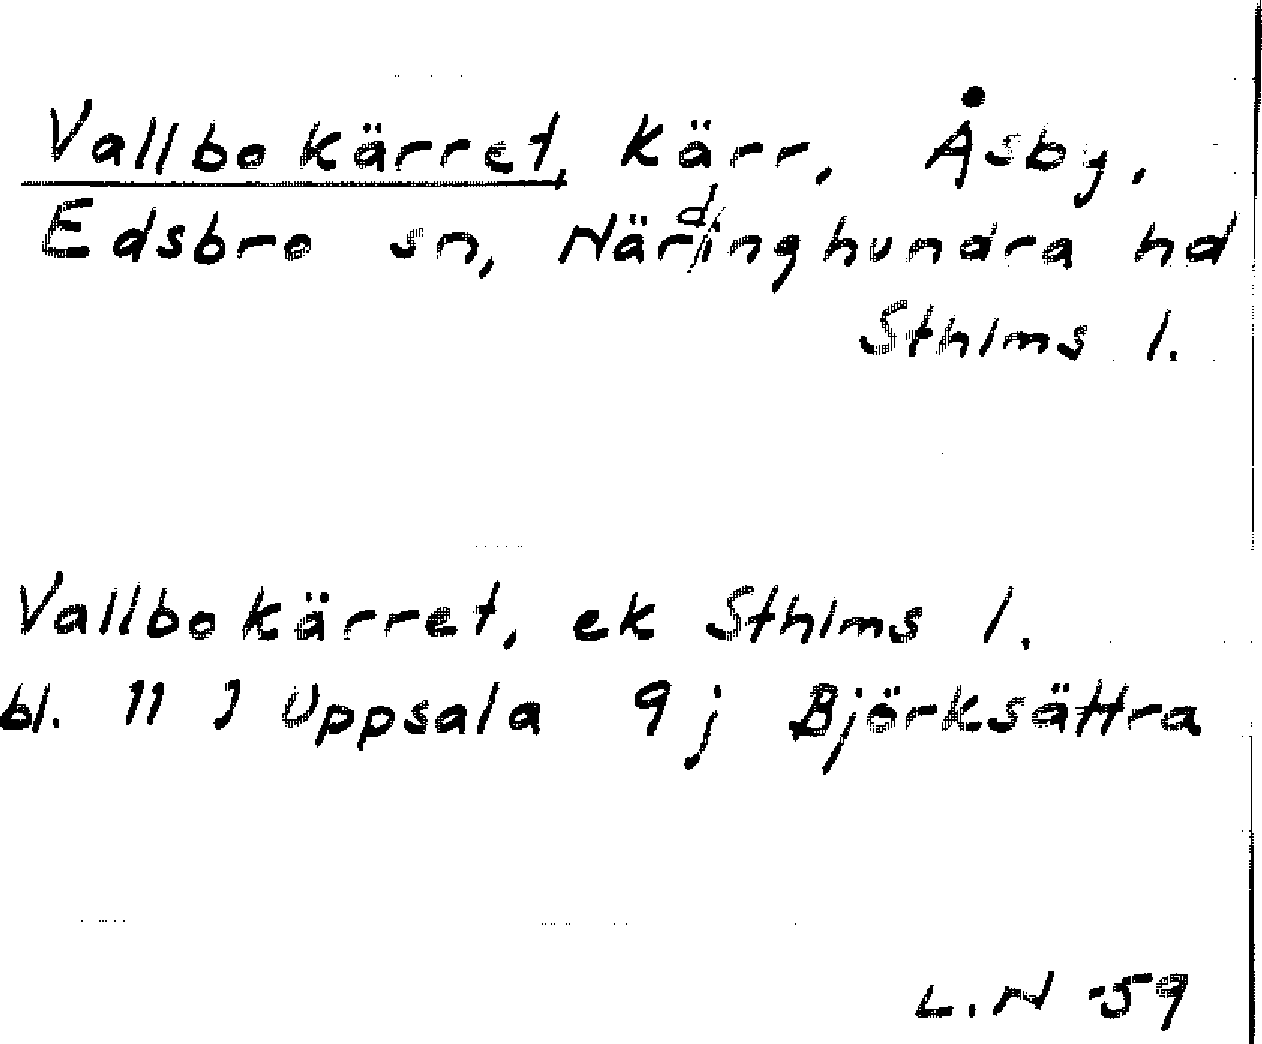 Vallbokärret, Kärr, Åsby,
Edsbro sn, Närdinghundra hd
Sthlms l.
Vallbokärret, ek Sthlms l.
bl. 11 J Uppsala 9 j Björksättra
L.N -59